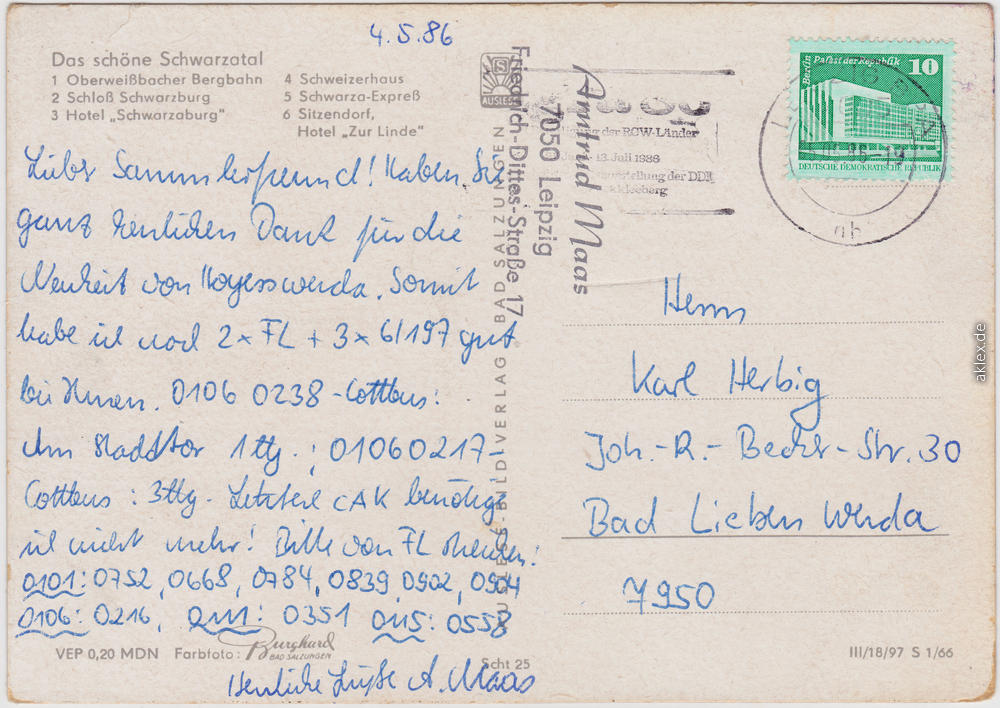 4.5.86
Das schöne Schwarzatal
1 Oberweißbacher Bergbahn
2 Schloß Schwarzburg
3 Hotel „Schwarzaburg"
4 Schweizerhaus
5 Schwarza-Expreß
6 Sitzendorf,
Hotel „Zur Linde"
Lieber Sammlerfreund! Haben Sie
ganz herzlichen Dank für die
Neuheit von Hoyerswerda. Somit
habe ich noch 2x FL + 3x 6/197 gut
bei Ihnen. 0106 0238 - Cottbus:
Am Stadttor 1ttg.; 01060217-
Cottbus: 3ttg. Letztere AK benötige
ich nicht mehr! Bitte von FL
0101: 0752, 0668, 0784, 0839, 0902, 0904
0106: 0216, 0111: 0351 0115: 0558
Herzliche Grüße A. Maas
VEP 0,20 MDN Farbfoto: Burghard
BAD SALZUNGEN
Scht 25
AUSLESE
AUSLESE-BILD-VERLAG BAD SALZUNGEN
Antrud Maas
Friedrich-Dittes-Straße 17
7050 Leipzig
der RGW-Länder
13. Juli 1986
ausstellung der DDR
Markkleeberg
Berlin Palast der Republik 10
DEUTSCHE DEMOKRATISCHE REPUBLIK
Herrn
Karl Herbig
Joh.-R.-Becher-Str. 30
Bad Liebenwerda
7950
III/18/97 S 1/66
aklex.de